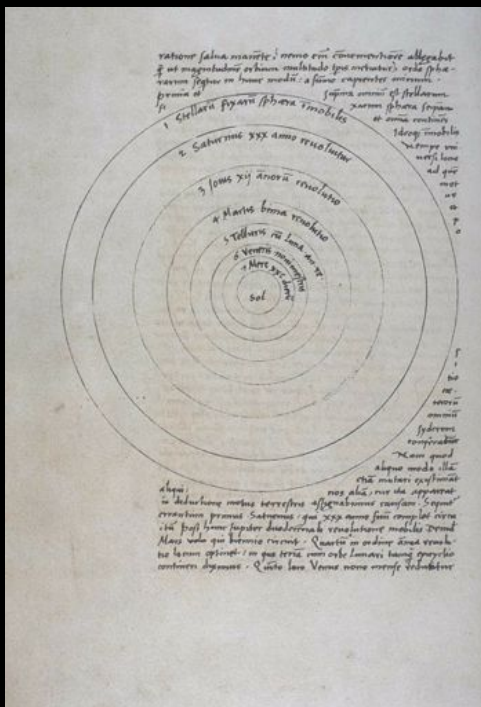 ratione salua manente, nemo em̄ conuenientiorē allegabit
q̄ ut magnitudinē orbium multitudo tp̄is metiatur, ordo sphæ-
rarum sequitur in hunc modū: a sūmo capientes initium.
prima et suprema omniū est stellarum
fi xarum sphæra seipsam
et omnia continēs
Ideoq; īmobilis
nempe uni
uersi locus
ad quē
mot
us
et
p
o
1 Stellarū fixarū sphæra īmobilis
2 Saturnus xxx anno reuoluitur
3 Iouis xij anorū reuolutio
4 Martis bima reuolutio
5 Telluris cū Luna an. re.
6 Veneris nonimestris
7 Merc xxc dierū
Sol
s
i
tio
ce-
terorū
omniū
syderum
conferatur
Nam quod
aliquo modo illā
etiā mutari existimāt
aliqui: nos aliā, cur ita appareat
in deductione motus terrestris assignabimus causam. Sequit̄
errantium primus Saturnus: qui xxx anno suū complet circu
itū post hunc Iupiter duodecennali reuolutione mobilis Deinde
Mars uolo qui biennio circuit. Quartū in ordine annua reuolu-
tio locum optinet: in quo terrā cum orbe lunari tanq̄ epicyclio
contineri diximus. Quinto loco Venus nono mense reducitur